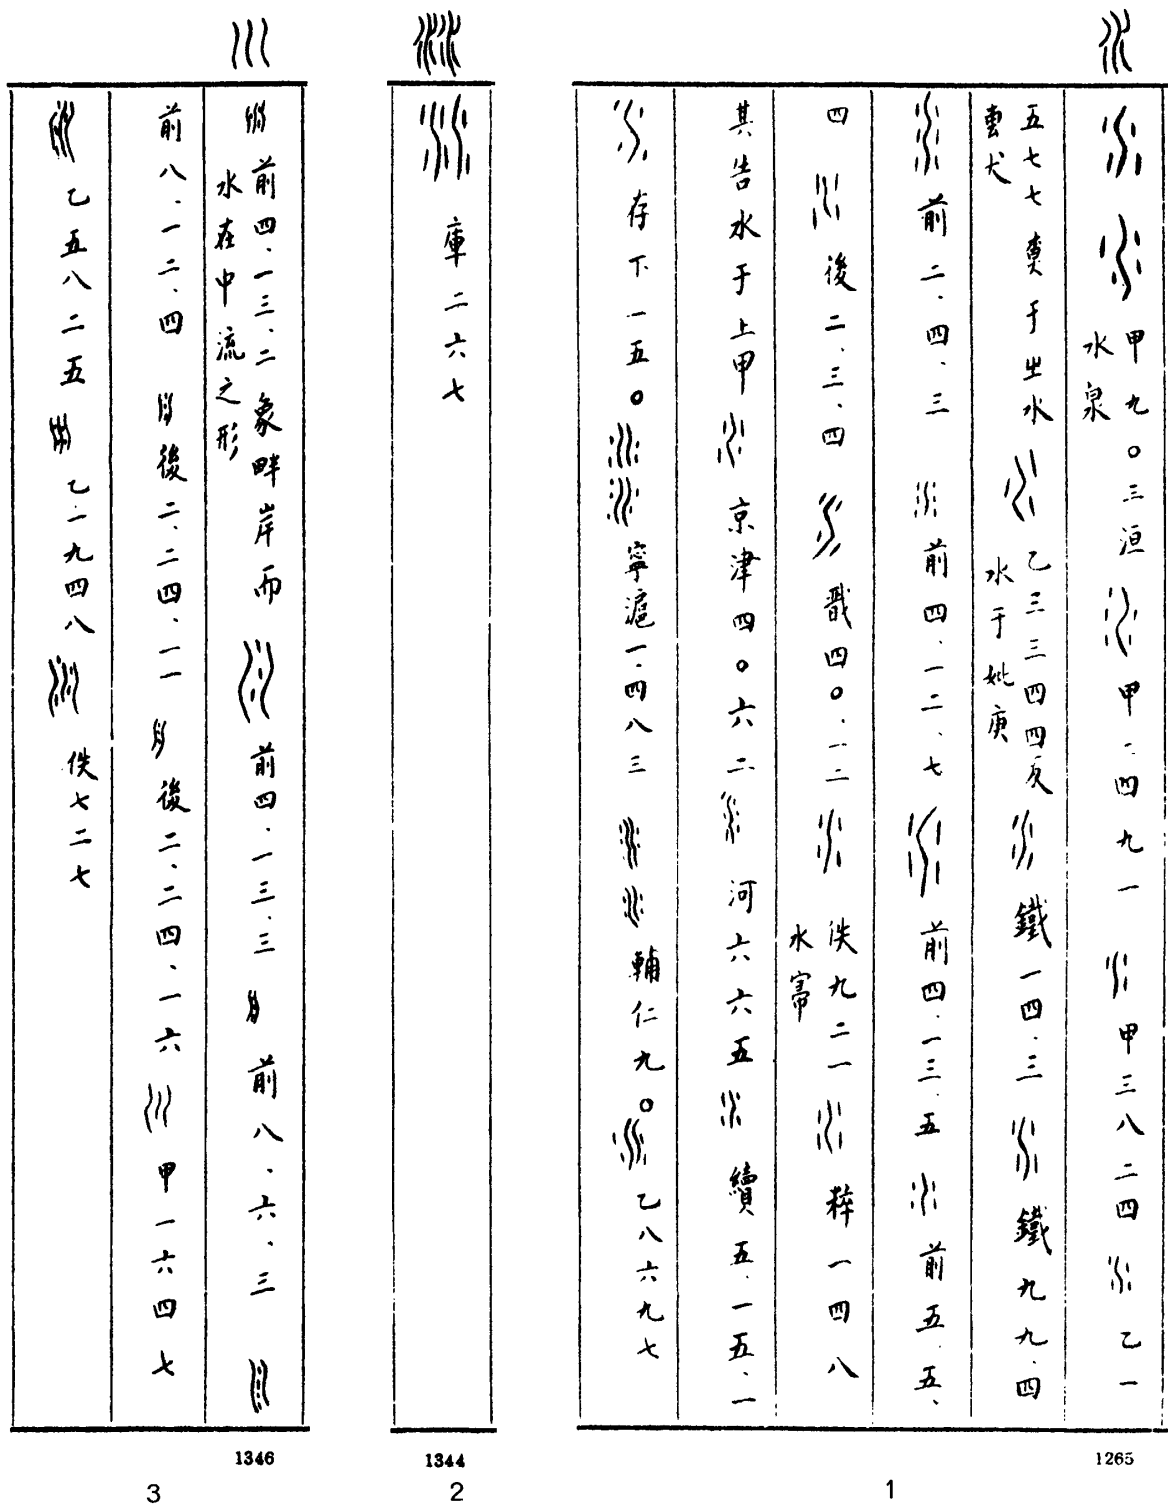 甲九〇三洹
水泉
甲二四九一
甲三八二四
乙一
五七七 㞢于㞢水
犬
乙三三四四反
水于妣庚
鐵一四.三
鐵九九.四
前二.四.三
前四.一二.七
前四.一三.五
前五.五.
四
後二.三.四
戩四〇.一二
佚九二一
水
粹一四八
其告水于上甲
京津四〇六二
河六六五
續五.一五.一
存下一五〇
寧滬一.四八三
輔仁九〇
乙八六九七
1265
1
庫二六七
1344
2
前四.一三.二象畔岸而
水在中流之形
前四.一三.三
前八.六.三
前八.一二.四
後二.二四.一一
後二.二四.一六
甲一六四七
乙五八二五
乙一九四八
佚七二七
1346
3